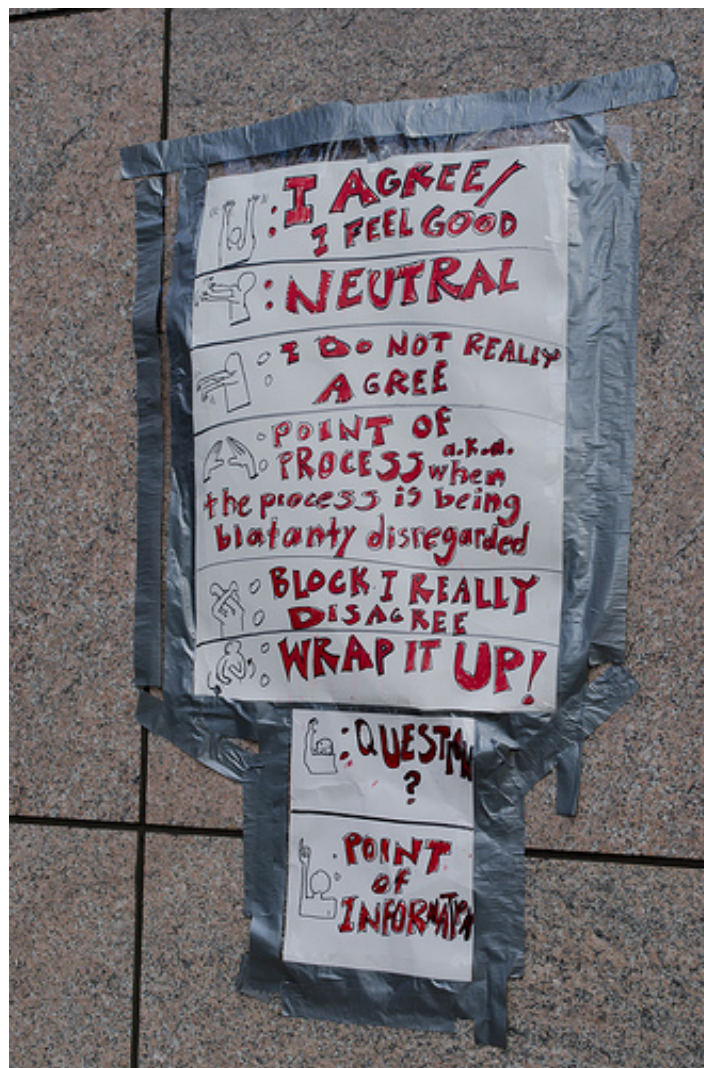 : I AGREE/
I FEEL GOOD
: NEUTRAL
: I DO NOT REALLY
AGREE
: POINT OF
PROCESS a.k.a. when
the process is being
blatanty disregarded
: BLOCK I REALLY
DISAGREE
: WRAP IT UP!
: QUESTION
?
: POINT
OF
INFORMATION